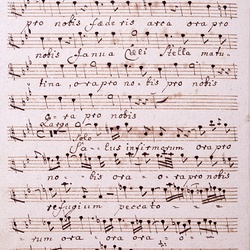 pro nobis fæderis arca ora pro
nobis Janua Cœli Stella matu
tina, ora pro no-bis pro nobis
ora pro nobis
Largo Solo
Salus infirmorum ora pro
no - bis ora - o-ra pro nobis
refugium peccato -
rum ora ora ora -